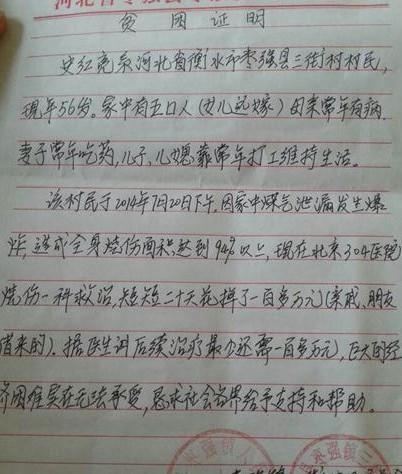 贫困证明
史红亮系河北省衡水市枣强县三街村村民,
现年56岁。家中有五口人(女儿远嫁)母亲常年有病.
妻子常年吃药,儿子、儿媳靠常年打工维持生活。
该村民于2014年7月20日下午,因家中煤气泄漏发生爆
炸,造成全身烧伤面积达到94%以上,现在北京304医院
烧伤一科救治,短短二十天花掉了一百多万元(亲戚、朋友
借来的)。据医生讲后续治疗最少还需一百多万元,巨大的经
济困难实在无法承受,恳求社会各界给予支持和帮助。
枣强镇